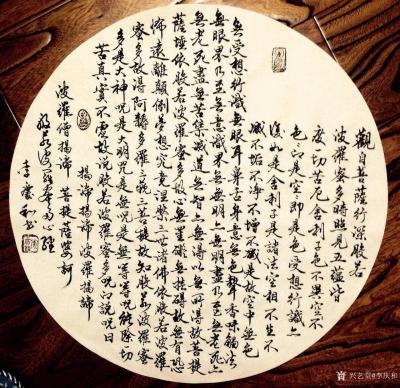 觀自在菩薩行深般若
波羅蜜多時照見五蘊皆空
度一切苦厄舍利子色不異空空不異
色色即是空空即是色受想行識亦
復如是舍利子是諸法空相不生不
滅不垢不淨不增不減是故空中無色
無受想行識無眼耳鼻舌身意無色聲香味觸法
無眼界乃至無意識界無無明亦無無明盡乃至無老死亦
無老死盡無苦集滅道無智亦無得以無所得故菩提
薩埵依般若波羅蜜多故心無罣礙無罣礙故無有恐
怖遠離顛倒夢想究竟涅槃三世諸佛依般若波羅
蜜多故得阿耨多羅三藐三菩提故知般若波羅蜜
多是大神咒是大明咒是無上咒是無等等咒能除一切
苦真實不虛故說般若波羅蜜多咒即說咒曰
揭諦揭諦波羅揭諦
波羅僧揭諦菩提薩婆訶
般若波羅蜜多心經
李慶和書
兴艺堂@李庆和